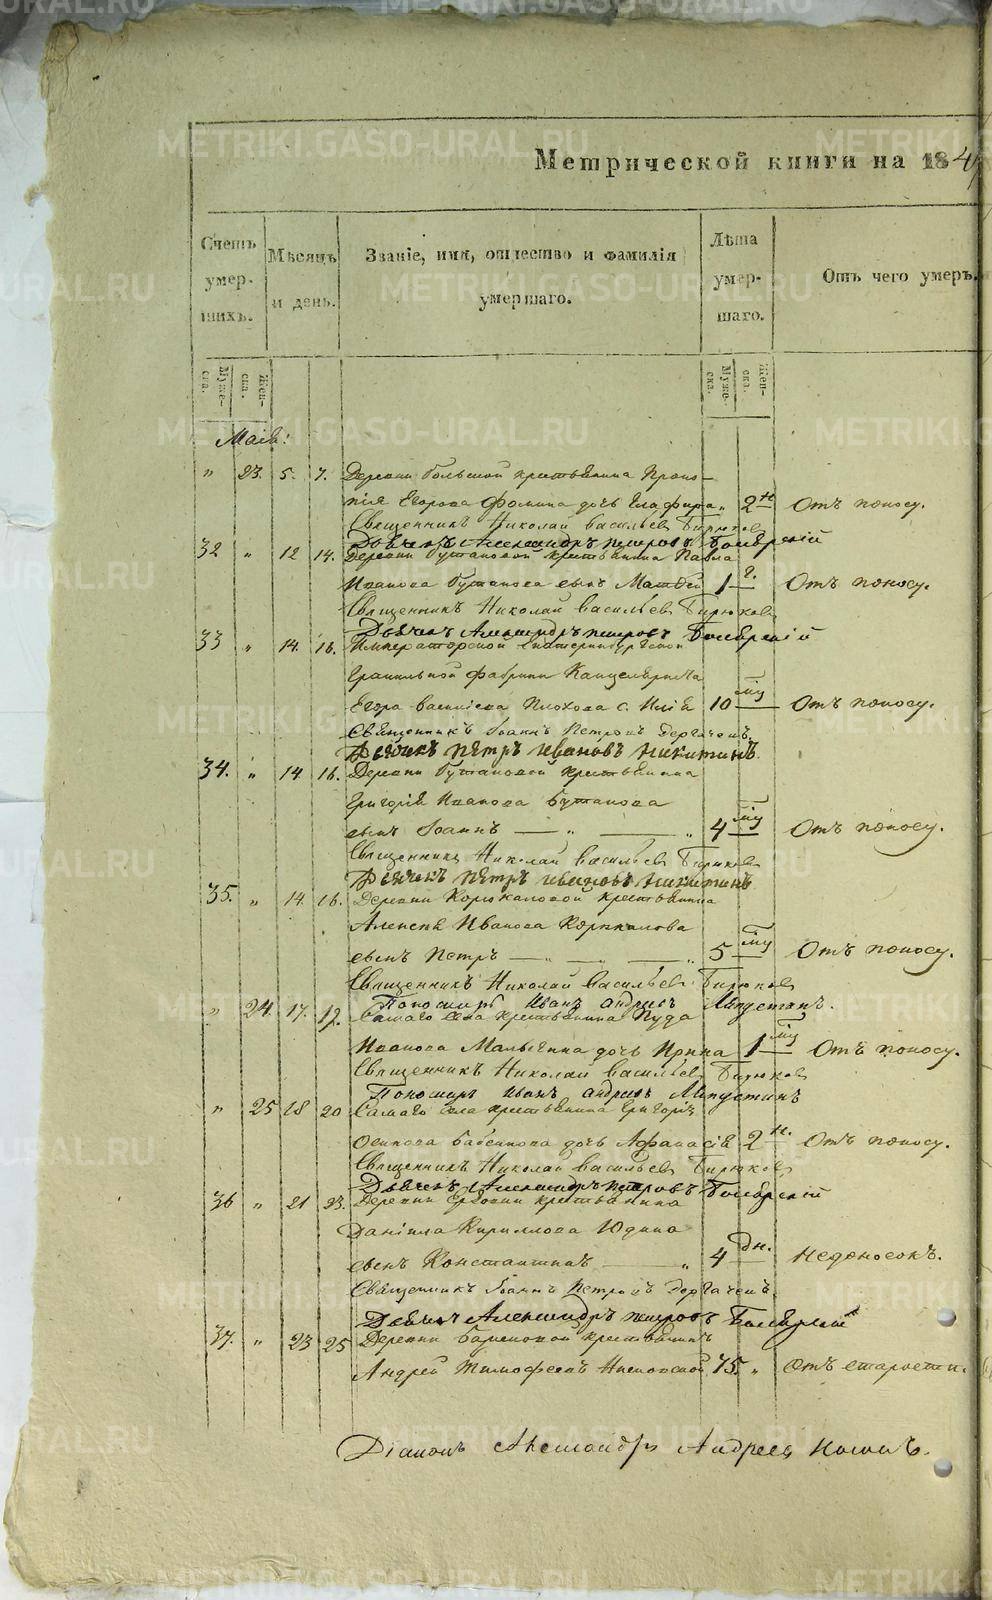 METRIKI.GASO-URAL.RU
Метрической книги на 184
Счетъ умер- шихъ.
Мѣсяцъ и день.
Званіе, имя, отчество и фамилія умершаго.
Лѣта умер- шаго.
Отъ чего умеръ.
Муже- ска.
Жен- ска.
Муже- ска.
Жен- ска.
Маія:
" 23. 5. 7. Деревни большой крестьянина Проко-
пія Егорова Фомина дочь Глафира " 2 н Отъ поносу.
Священникъ Николай Васильевъ Бирюковъ
Дьячекъ Александръ Петровъ
32 " 12 14. Деревни Бутаковой крестьянина Павла
Иванова Бутакова сынъ Матвей 1 г. Отъ поносу.
Священникъ Николай Васильевъ Бирюковъ
Дьячекъ Александръ Петровъ
33 " 14. 16. Императорской Екатеринбургской
Гранильной фабрики Канцеляриста
Егора Васильева Плохова с. Илія 10 Отъ поносу.
Священникъ Іоаннъ Петровъ
Дьячекъ Петръ Ивановъ Никитинъ.
34. " 14 16. Деревни Бутаковой крестьянина
Григорія Иванова Бутакова
сынъ Іоаннъ — " — " 4 Отъ поносу.
Священникъ Николай Васильевъ Бирюковъ
Дьячекъ Петръ Ивановъ Никитинъ
35. " 14. 16. Деревни Корюкаловой крестьянина
Алексея Иванова Корюкалова
сынъ Петръ — " — " 5 Отъ поносу.
Священникъ Николай Васильевъ Бирюковъ
Пономарь Иванъ
" 24. 17. 19. Самаго села крестьянина Іуда
Иванова Малыгина дочь Ирина 1 Отъ поносу.
Священникъ Николай Васильевъ Бирюковъ
Пономарь Иванъ
" 25 18 20 Самаго села крестьянина Григорія
Осипова Бабенкова дочь Афанасія 2 н. Отъ поносу.
Священникъ Николай Васильевъ Бирюковъ
Дьячекъ Александръ Петровъ
36 " 21 23. Деревни крестьянина
Даніила Кириллова Юдина
сынъ Константинъ — " 4 дн. Недоносокъ.
Священникъ Іоаннъ Петровъ
Дьячекъ Александръ Петровъ
37. " 23 25 Деревни крестьянинъ
Андрей Тимофеевъ 75. " Отъ старости.
Діаконъ Александръ Андреевъ